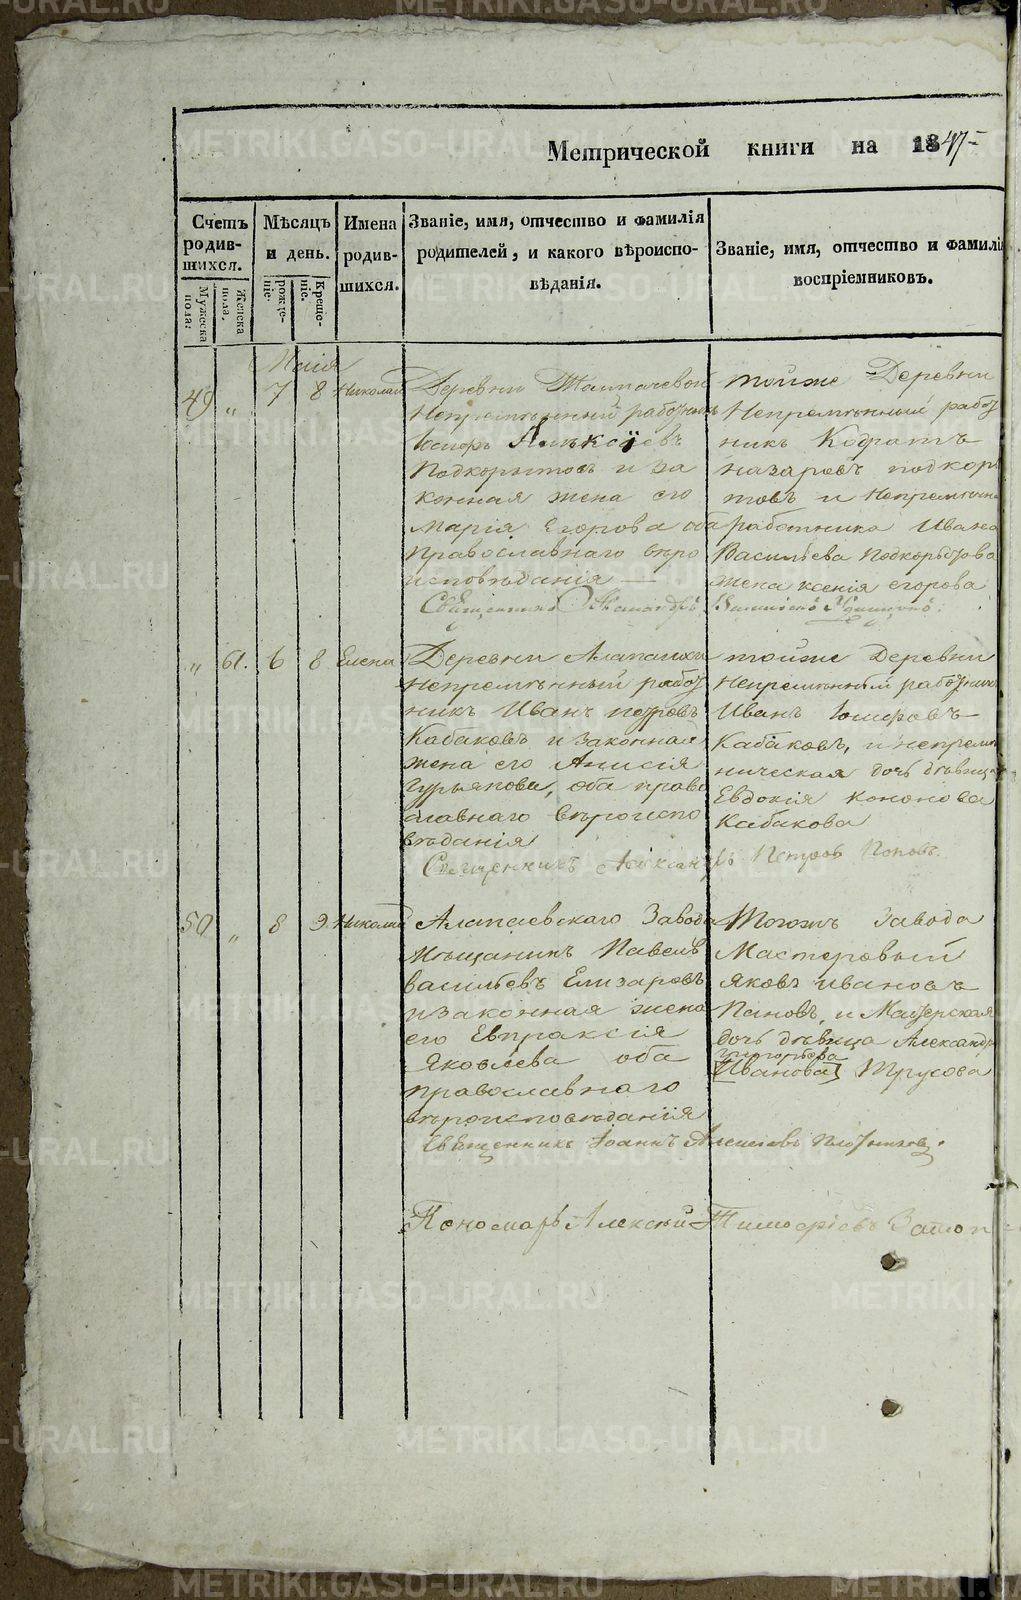 Метрической книги на 1847
Счетъ родившихся.
Мужеска пола.
Женска пола.
Мѣсяцъ и день.
рожденіе.
Крещеніе.
Имена родившихся.
Званіе, имя, отчество и фамилія
родителей, и какого вѣроиспо-
вѣданія.
Званіе, имя, отчество и фамилі
воспріемниковъ.
Маія
49 „ 7 8 Николай
Деревни
Непремѣнный работникъ
Іосифъ Алексіевъ
Подкорытовъ и за
конная жена его
Марія Егорова оба
православнаго вѣро
исповѣданія
Священникъ Александръ
тойже Деревни
Непремѣнный работ
никъ Кодратъ
назаровъ подкоры
товъ и Непремѣнна
работника Ивана
Васильева Подкорытова
жена ксенія егорова
„ 61. 6 8 Елена
Деревни Алапаихи
непремѣнный работ
никъ Иванъ петровъ
Кабаковъ и законная
жена его Анисія
Гурьянова, оба право
славнаго вѣроиспо
вѣданія
Священникъ Александръ Петровъ Поповъ.
тойже Деревни
непремѣнный работникъ
Иванъ Іосифовъ
Кабаковъ, и непремѣ
ническая дочь дѣвица
Евдокія кононова
Кабакова
50 „ 8 9 Николай
Алапаевскаго Завода
Мѣщанинъ Павелъ
васильевъ Елизаровъ
и законная жена
его Евпраксія
Яковлева оба
православнаго
вѣроисповѣданія
Священникъ Іоаннъ Алексіевъ Плотниковъ.
Тогожъ Завода
Мастеровый
Яковъ ивановъ
Пановъ, и Мастерская
дочь дѣвица Александра
Григорьева
[Иванова] Трусова
Пономарь Алексѣй Тимофѣевъ
METRIKI.GASO-URAL.RU